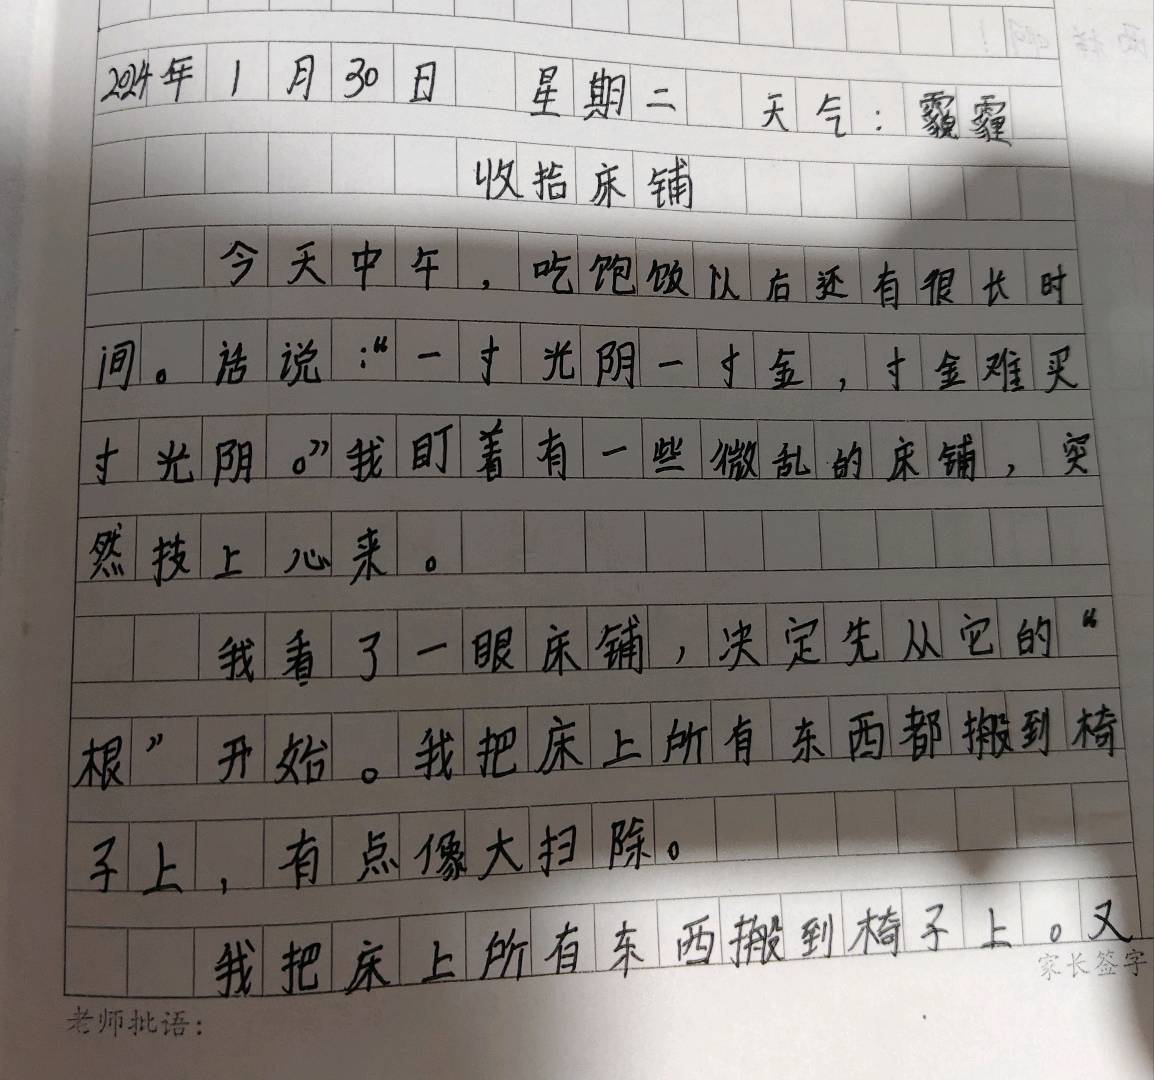 2024年1月30日 星期二 天气：霾
收拾床铺
今天中午，吃饱饭以后还有很长时
间。话说：“一寸光阴一寸金，寸金难买
寸光阴。”我盯着有一些微乱的床铺，突
然技上心来。
我看了一眼床铺，决定先从它的“
根”开始。我把床上所有东西都搬到椅
子上，有点像大扫除。
我把床上所有东西搬到椅子上。又
家长签字
老师批语：